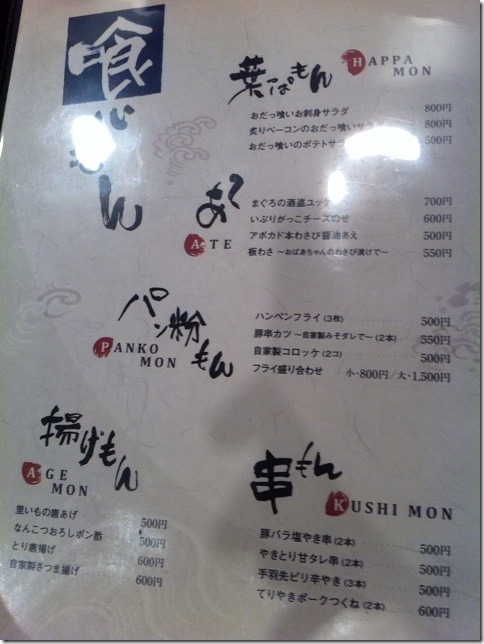 喰いもん
葉っぱもん
HAPPA MON
おだっ喰いお刺身サラダ 800円
炙りベーコンのおだっ喰いサラダ 800円
おだっ喰いのポテトサラ 500円
あて
ATE
まぐろの酒盗ユッケ 700円
いぶりがっこチーズのせ 600円
アボカド本わさび醤油あえ 500円
板わさ ～おばあちゃんのわさび漬けで～ 550円
パン粉もん
PANKO MON
ハンペンフライ(3枚) 500円
豚串カツ ～自家製みそダレで～(2本) 550円
自家製コロッケ(2コ) 500円
フライ盛り合わせ 小・800円/大・1,500円
揚げもん
AGE MON
里いもの唐あげ 500円
なんこつおろしポン酢 500円
とり唐揚げ 600円
自家製さつま揚げ 600円
串もん
KUSHI MON
豚バラ塩やき串(2本) 500円
やきとり甘タレ串(2本) 500円
手羽先ピリ辛やき(3本) 500円
てりやきポークつくね(2本) 600円